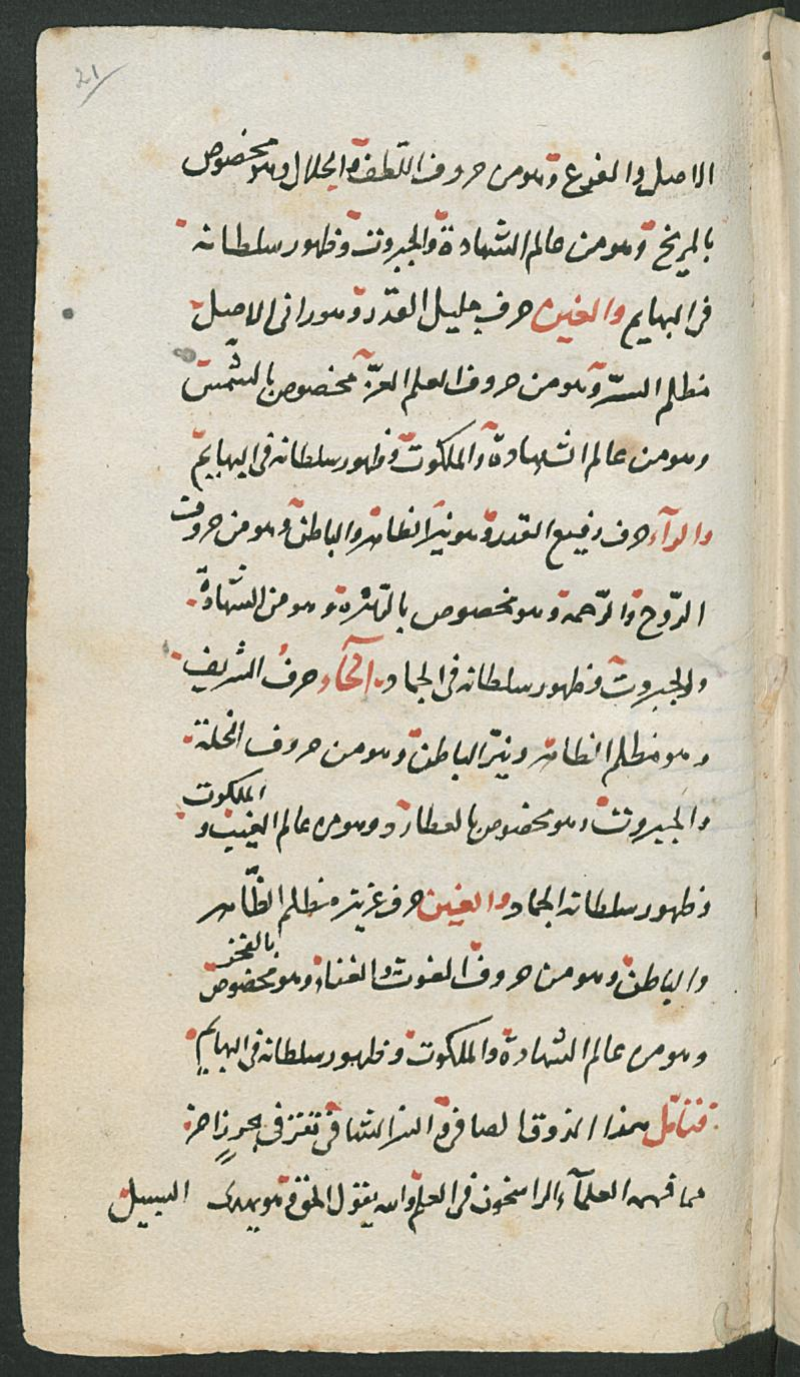 21
الاصل والفرع وهو من حروف اللطف والجلال وهو مخصوص
بالمريخ وهو من عالم الشهادة والجبروت وظهور سلطانه
فى البهايم والعين حرف جليل القدر وهو رانى الاصيل
مظلم السرّ وهو من حروف العلم العزّ مخصوص بالشمس
وهو من عالم الشهادة والملكوت وظهور سلطانه فى البهايم
والرآء حرف رفيع القدر وهو نيّر الظاهر والباطن وهو من حروف
الرّوح والرّحمة وهو مخصوص بالزهرة وهو من الشهادة
والجبروت وظهور سلطانه فى الجماد الخآء حرف الشريف
وهو مظلم الظاهر ونيّر الباطن وهو من حروف الخلة
والجبروت وهو مخصوص بالعطارد وهو من عالم الغيب و الملكوت
وظهور سلطانه الجماد والغين حرف عزيز مظلم الظّاهر
والباطن وهو من حروف الغوث والغناء وهو مخصوص
وهو من عالم الشهادة والملكوت وظهور سلطانه فى البهايم
فتأمل هذا الذوق الصافى فى بحر زاخر
مما فهمه العلمآء الراسخون فى العلم والله يقول الحق وهو يهدى السبيل